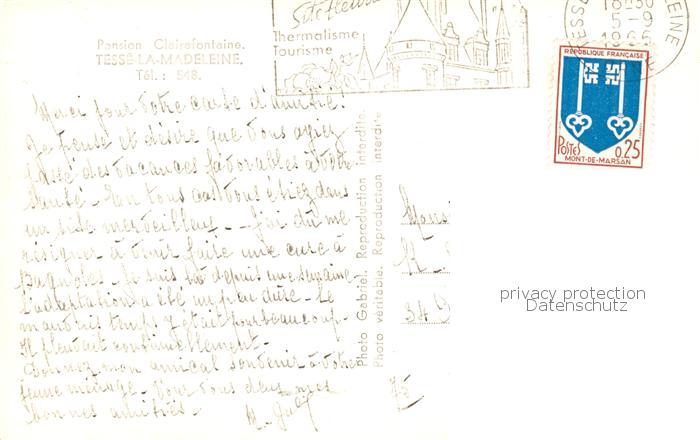 Pension Clairefontaine.
TESSÉ-LA-MADELEINE.
Tél. : 548.
Site fleuri
Thermalisme
Tourisme
18-30
5-9
1965
RÉPUBLIQUE FRANÇAISE
POSTES 0,25
MONT-DE-MARSAN
Merci pour votre carte d'amitié.
Je pense et désire que vous ayiez
passé des vacances favorables à votre
santé - En tous cas vous étiez dans
un site merveilleux - J'ai du me
résigner à venir faire une cure à
Bagnoles - Je suis là depuis une semaine
l'adaptation a été un peu dure - Le
mauvais temps y était pour beaucoup -
Il pleuvait continuellement -
Donnez mon amical souvenir à votre
jeune ménage - Pour vous deux mes
bonnes amitiés -
Photo Gabriel. Reproduction interdite.
Photo véritable. Reproduction interdite
Mons
34
privacy protection
Datenschutz